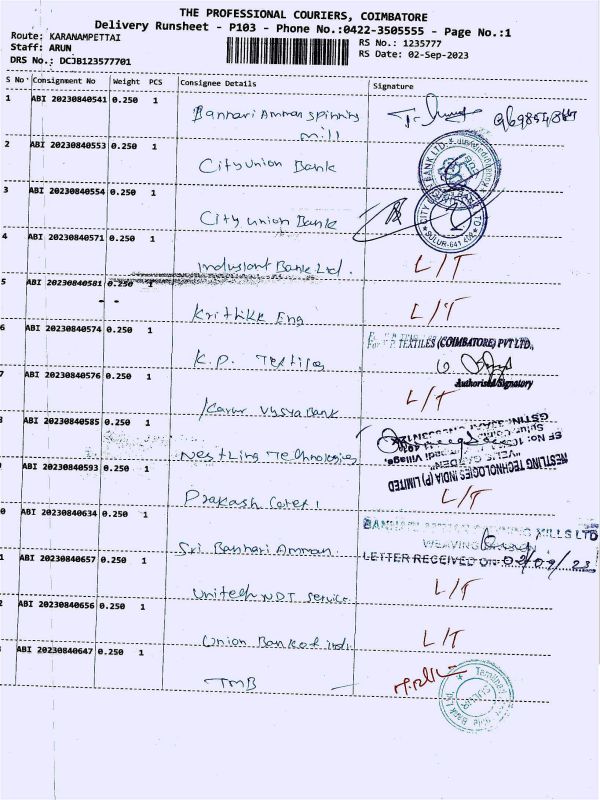 THE PROFESSIONAL COURIERS, COIMBATORE
Delivery Runsheet - P103 - Phone No.:0422-3505555 - Page No.:1
Route: KARANAMPETTAI
RS No.: 1235777
Staff: ARUN
RS Date: 02-Sep-2023
DRS No.: DCJB123577701
S No Consignment No Weight PCS Consignee Details Signature
1 ABI 20230840541 0.250 1 Bannari Amman Spinning
mill
2 ABI 20230840553 0.250 1 City Union Bank
3 ABI 20230840554 0.250 1 City union Bank
SULUR-641 402
4 ABI 20230840571 0.250 1 Indusiant Bank Ltd. L/T
5 ABI 20230840581 0.250 1 Krithikk Eng L/T
6 ABI 20230840574 0.250 1 K.P. Textiles
TEXTILES (COIMBATORE) PVT LTD.
Authorised Signatory
7 ABI 20230840576 0.250 1 Karur Vysya Bank L/T
ABI 20230840585 0.250 1 Nestling Technologies
NESTLING TECHNOLOGIES INDIA (P) LIMITED
ABI 20230840593 0.250 1 Prakash L/T
0 ABI 20230840634 0.250 1 Sri Bannari Amman
MILLS LTD
WEAVING
LETTER RECEIVED ON 02/09/23
1 ABI 20230840657 0.250 1 Unitech NDT Service L/T
2 ABI 20230840656 0.250 1 Union Bank of indi L/T
ABI 20230840647 0.250 1 TMB